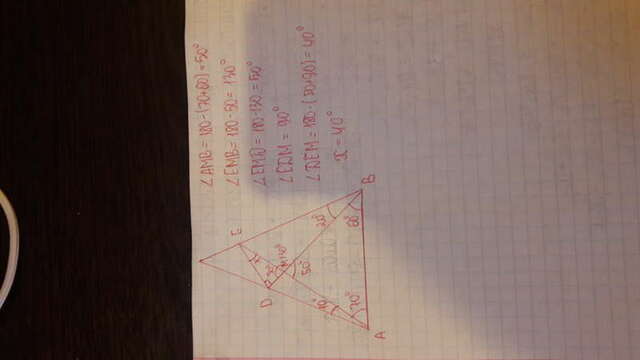 ∠AMB = 180-(70+60)=50°
∠EMB = 180-50= 130°
∠EMD = 180-130=50°
∠EDM = 90°
∠DEM = 180-(50+90)=40°
x = 40°
E
D
B
20°
60°
50°
70°
A